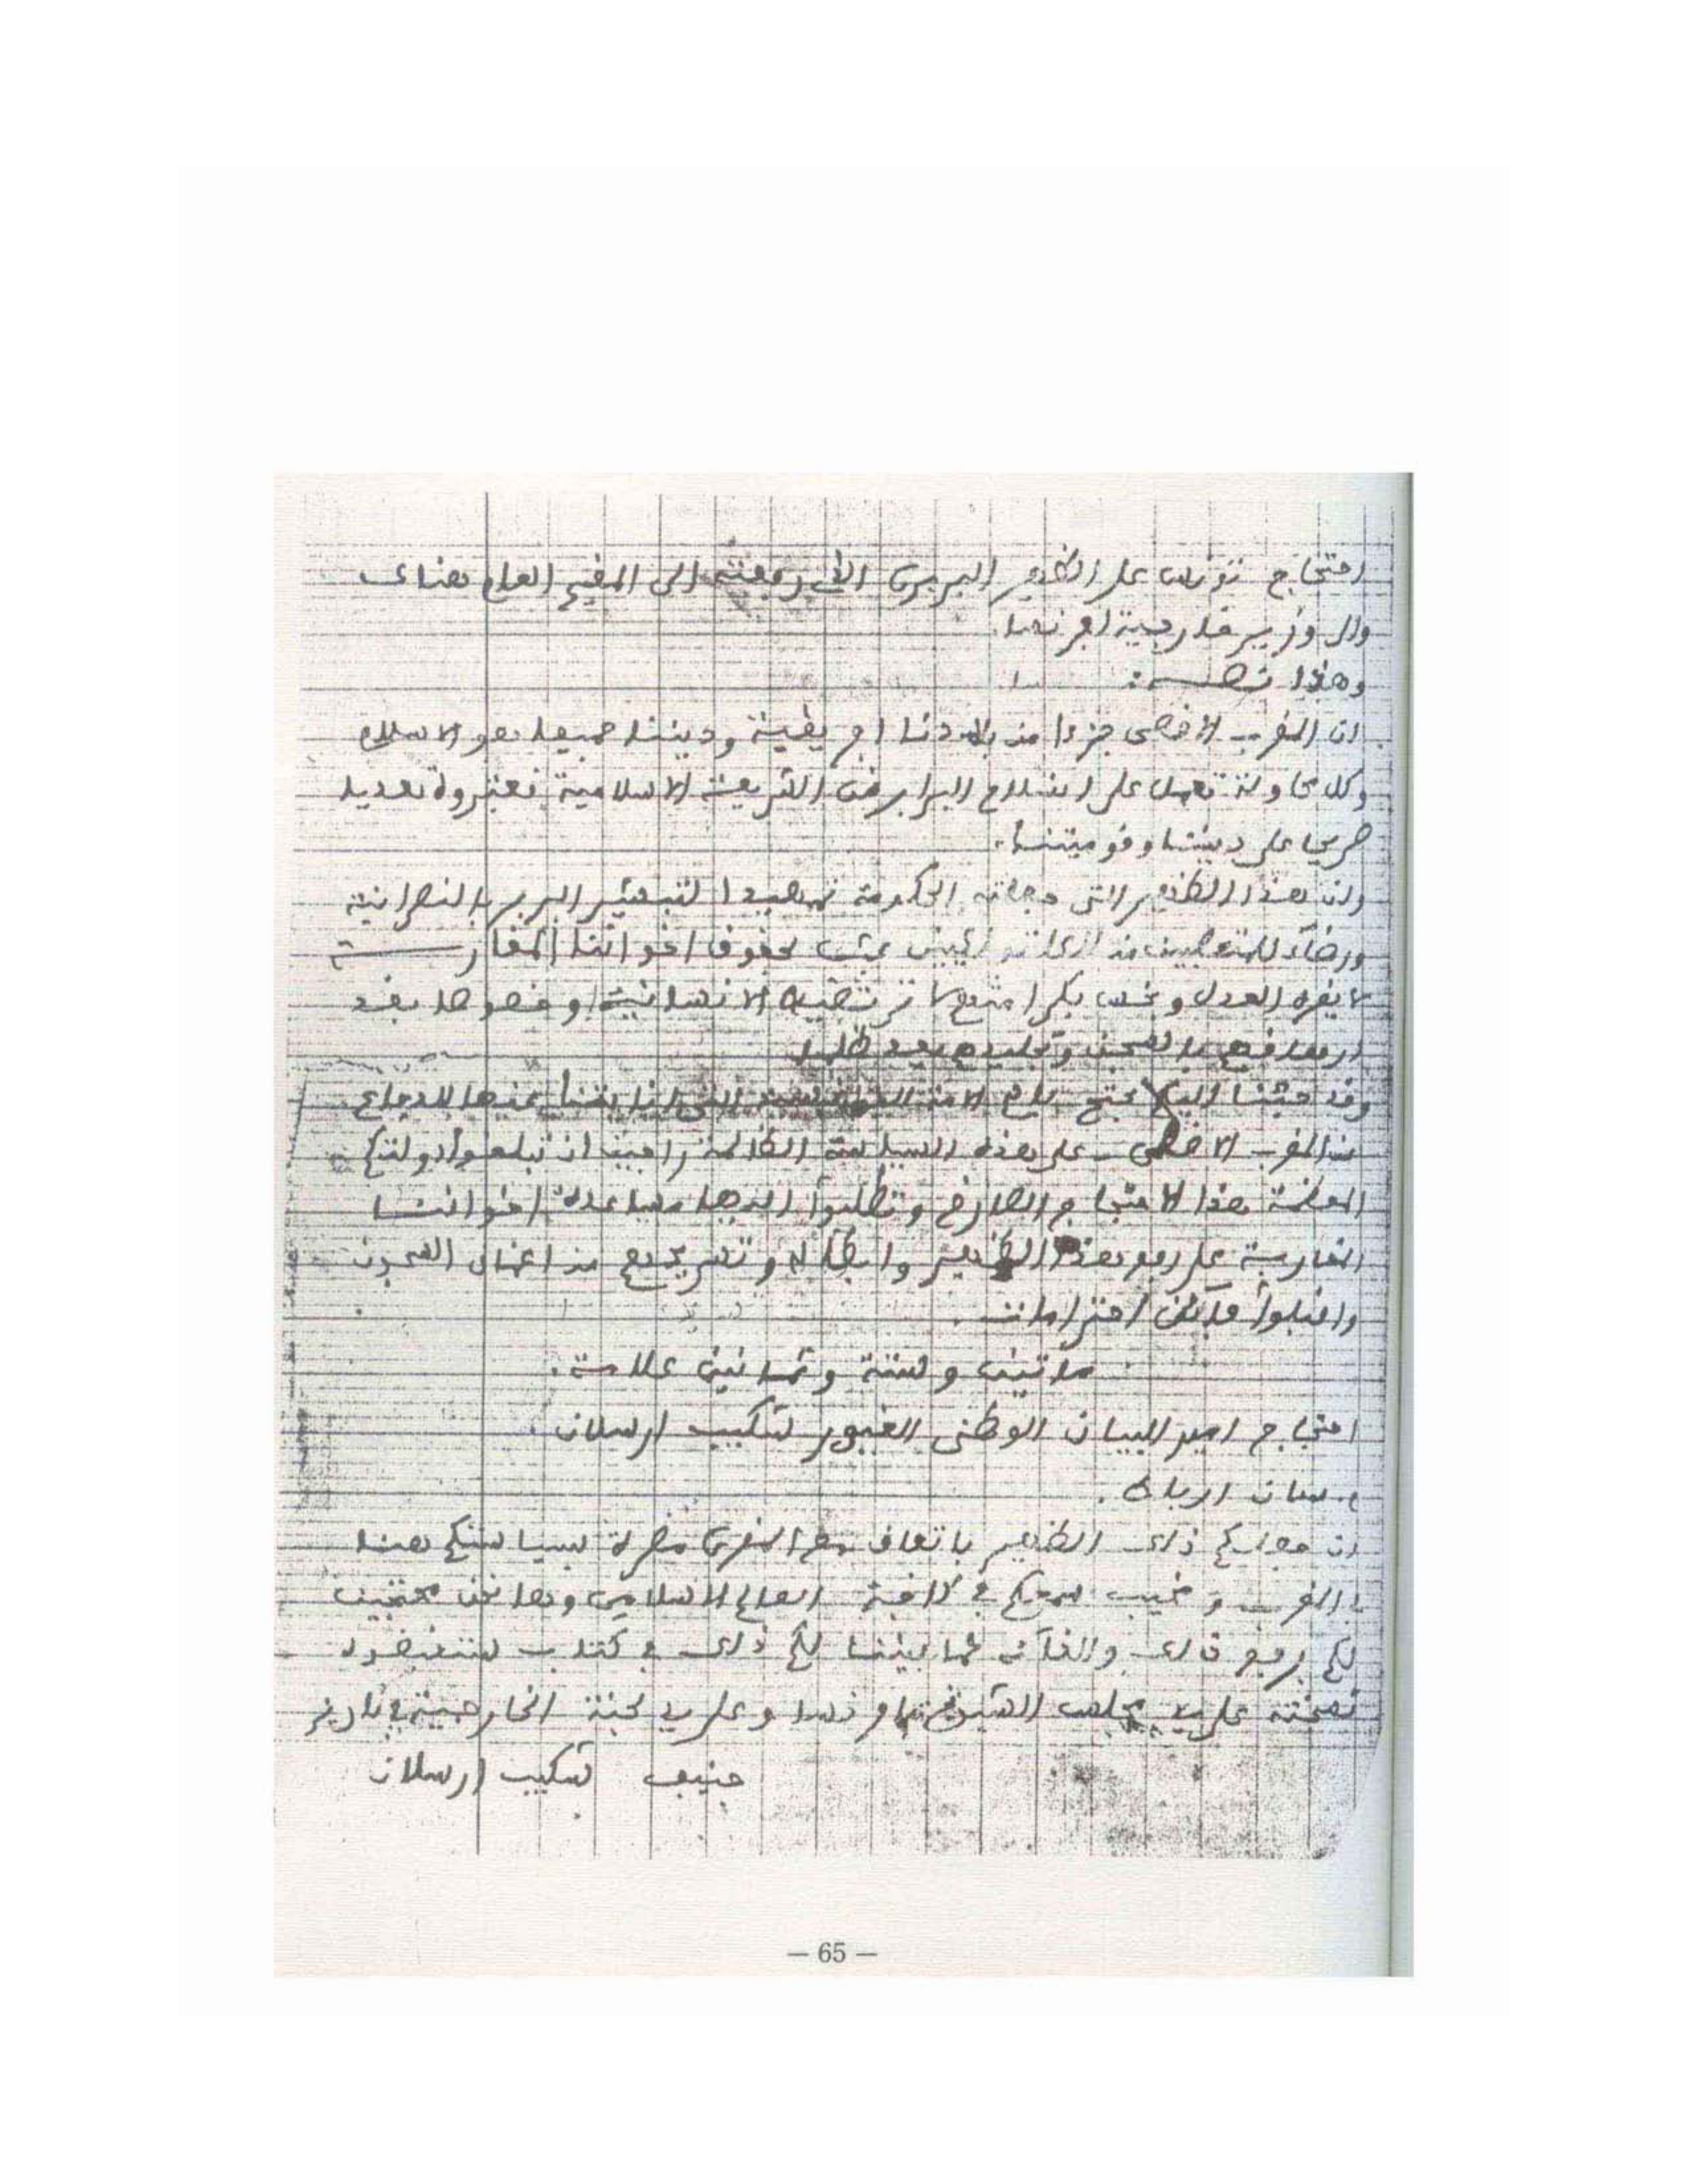 احتجاج تونس على الظهير البربري التي رفعته الى المقيم العام هناك
والى وزير خارجية افرنسا.
وهذا نصه:
ان المغرب الاقصى جزءا من بلادنا افريقية وديننا جميعا هو الاسلام
وكل محاولة تعمل على انسلاخ البرابر من الشريعة الاسلامية نعتبره تعديا
صريحا على ديننا وقوميتنا.
وان هذا الظهير التي جعلته الحكومة تمهيدا لتبشير البربر بالنصرانية
ورضاء للمتعصبين من عبث بحقوق اخواننا المغاربة
لا يقره العدل و لا ترتضيه الانسانية وخصوصا بعد
ارهاقهم بالسجن وتجليدهم بعد ظلما
وقد جئنا اليكم نحتج باسم الامة للدفاع
عن المغرب الاقصى على هذه السياسة الظالمة راجين ان تبلغوا دولتكم
المعظمة هذا الاحتجاج الصارخ وتطلبوا اخواننا
المغاربة على رفع هذا الظهير وابطاله و من اعماق السجون
واقبلوا فائق احترامات.
مائتين وستة وثمانين علامة.
احتجاج امير البيان الوطني الغيور شكيب ارسلان.
م. سان الرباط.
ان ذلك الظهير باتفاق مع سياستكم هنا
بالمغرب و سمعكم في كافة العالم الاسلامي وها نحن محتجين
لكم برفع ذلك والغائه كما بيننا لكم ذلك في كتاب ستنقفون
نسخته على يد مجلس الشيوخ بافرنسا وعلى يد لجنة الخارجية في باريز
جنيف شكيب ارسلان
— 65 —